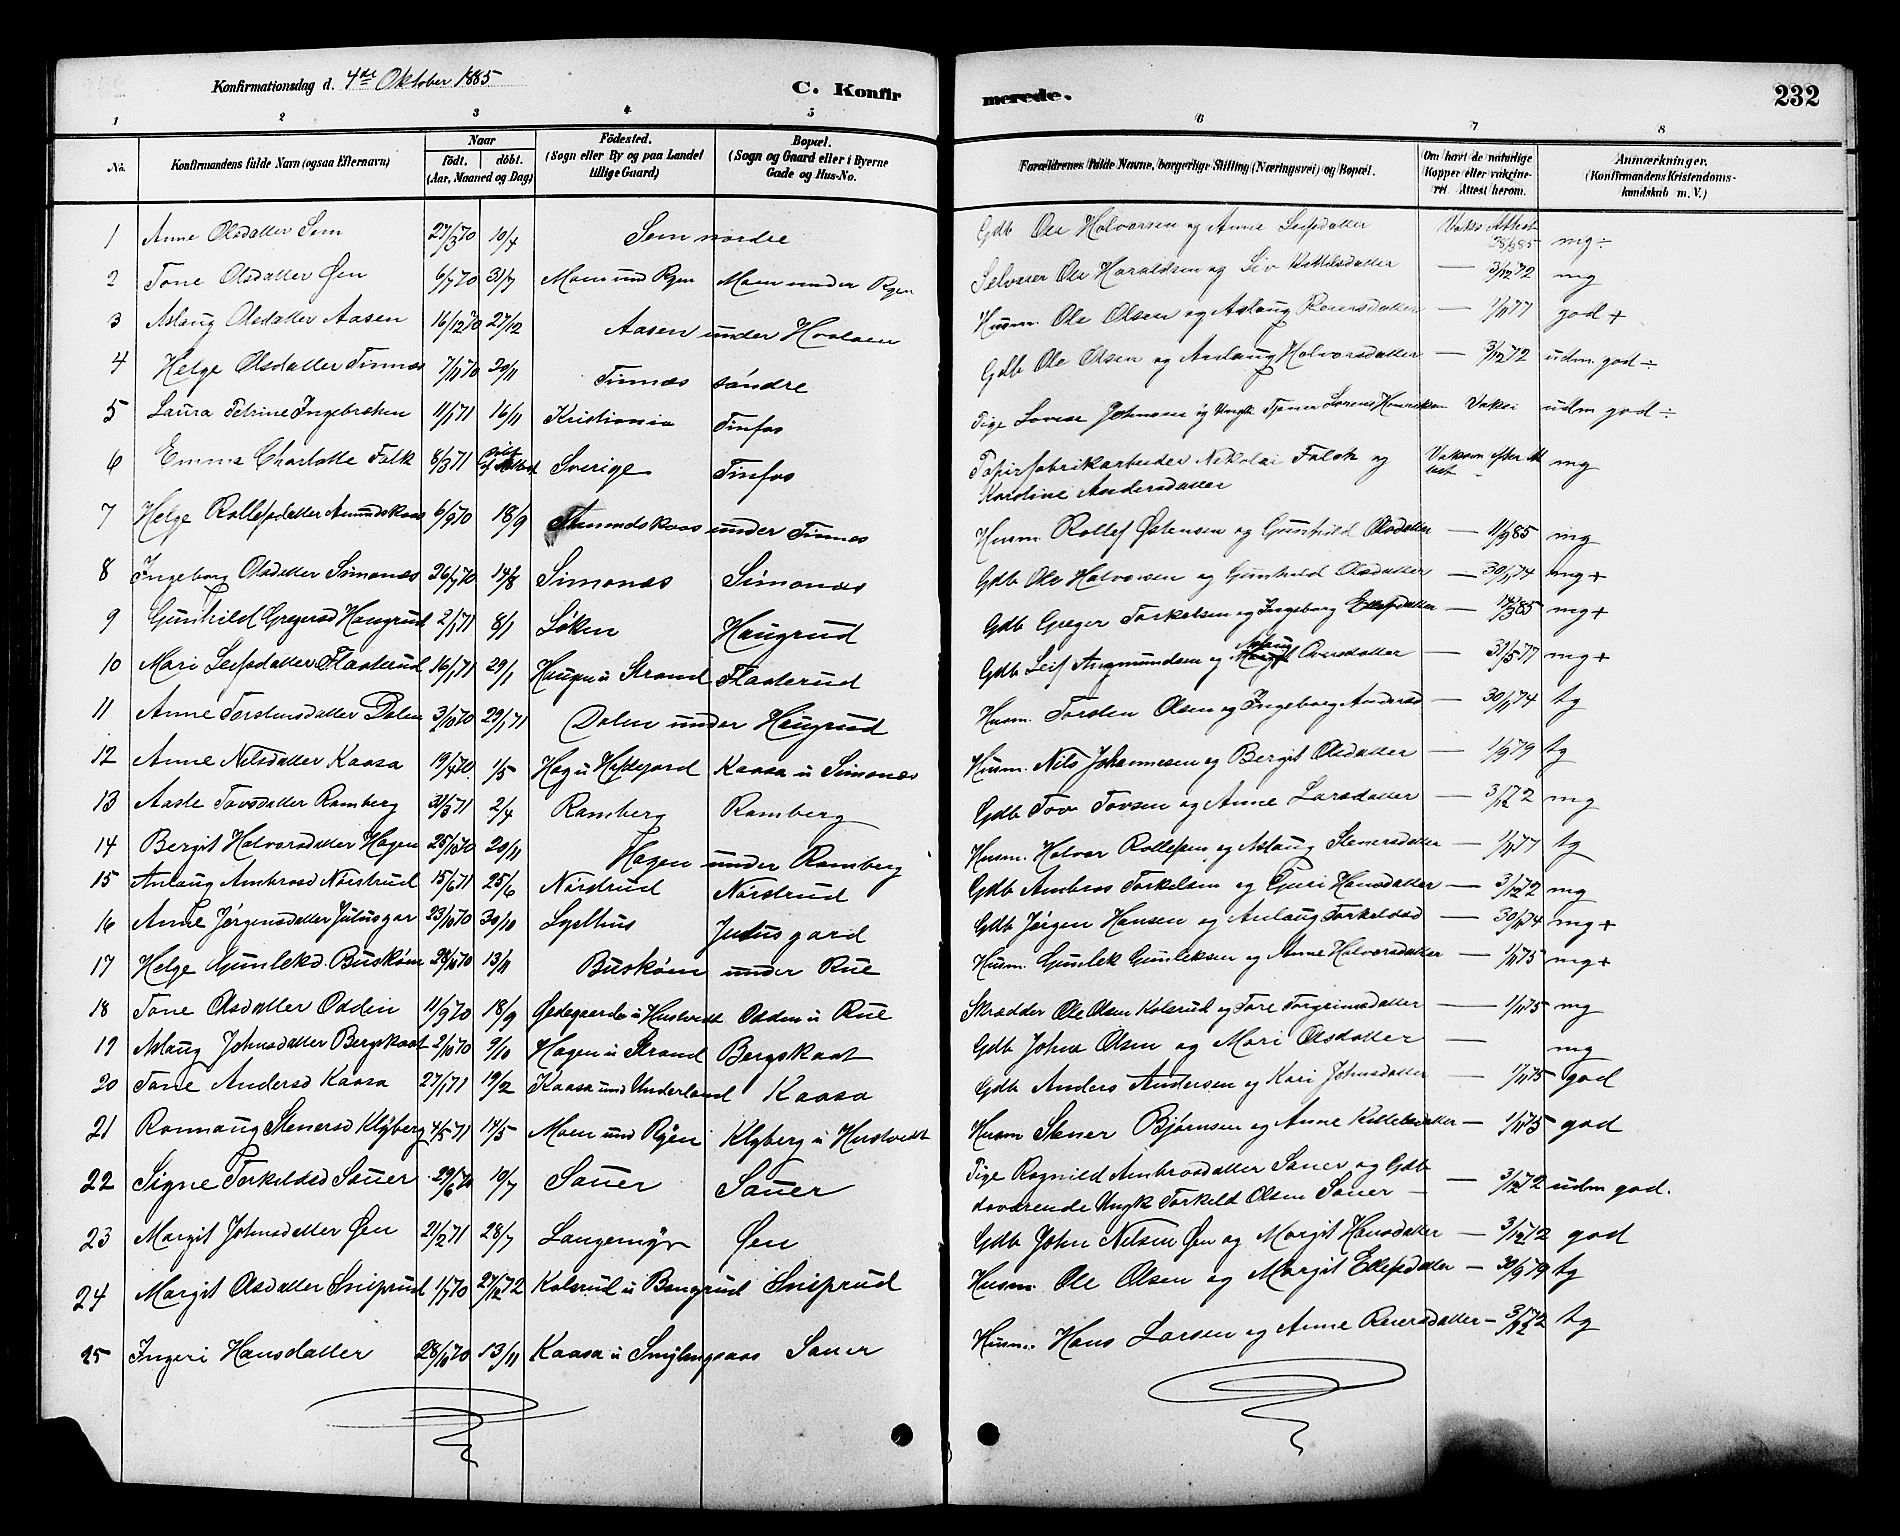 Konfirmationsdag d. 4de Oktober 1885
C. Konfirmerede.
232
1 2 3 4 5 6 7 8
No. Konfirmandens fulde Navn (ogsaa Efternavn) Naar födt. döbt. (Aar, Maaned og Dag) Födested. (Sogn eller By og paa Landet tillige Gaard) Bopæl. (Sogn og Gaard eller i Byerne Gade og Hus-No. Forældrenes fulde Navne, borgerlige Stilling (Næringsvei) og Bopæl. Om havt de naturlige Kopper eller vakcineret. Attest herom. Anmærkninger. (Konfirmandens Kristendomskundskab m. V.)
1 Anne Olsdatter Sem 27/3 70 10/4 Sem nordre Gdb Ole Halvorsen og Anna Leifsdatter Vaks. Attest 85 mg ÷
2 Tone Olsdatter Øen 6/7 70 31/7 Moen und Ryen Moen under Ryen Selveier Ole Haraldsen og Liv Kittilsdatter — 3/12 72 mg
3 Aslaug Olsdatter Aasen 16/12 70 27/12 Aasen under Husm. Ole Olsen og Aslaug Reiersdatter — 77 god +
4 Helge Olsdatter Tinnæs 7/11 70 20/11 Tinnæs söndre Gdb Ole Olsen og Anlaug Halvorsdatter — 3/12 72 udm. god ÷
5 Laura Petrine Ingebretsen 11/1 71 16/11 Kristiania Tinfos Pige Lovise Johnsen og Ungk Tjener Lorens Henriksen Vaksi udm god ÷
6 Emma Charlotte Falk 8/3 71 Sverige Tinfos Papirfabrikarbeider Nikolai Falck og Karoline Andersdatter Vaksin efter Attest mg
7 Helge Rollefsdatter Amundskaas 6/9 70 18/9 Amundskaas under Tinnes Husm. Rollef Østensen og Gunhild Olsdatter — 85 mg
8 Ingeborg Olsdatter Simonæs 26/7 70 14/8 Simonæs Simonæs Gdb Ole Halvorsen og Gunhild Olsdatter — 30/1 74 mg +
9 Gunhild Gregersd Haugrud 2/1 71 8/1 Løken Haugrud Gdb Greger Torkelsen og Ingeborg Ellefsdatter — 85 mg +
10 Mari Leifsdatter Flaaterud 16/1 71 29/1 Haugen u Strand Flaaterud Gdb Leif Angmundsen og Aslaug Oversdatter — 31/5 77 mg +
11 Anne Torstensdatter Dalen 3/10 70 29/1 71 Dalen under Haugrud Husm. Torsten Olsen og Ingeborg Andersd — 30/1 74 tg
12 Anne Nilsdatter Kaasa 19/4 70 1/5 Hag u Kaasa u Simonæs Husm. Nils Johannesen og Bergit Olsdatter — 1/9 79 tg
13 Aaste Tovsdatter Ramberg 31/3 71 2/4 Ramberg Ramberg Gdb Tov Tovsen og Anne Larsdatter — 3/12 72 mg
14 Bergit Halvorsdatter Hagen 25/10 70 20/11 Hagen under Ramberg Husm. Halvor Rollefsen og Aslaug Stenersdatter — 77 tg
15 Anlaug Ambrosd Nörstrud 15/6 71 25/6 Nörstrud Nörstrud Gdb Ambros Torkelsen og Guri Hansdatter — 3/12 72 mg
16 Anne Jörgensdatter Jutusgar 23/10 70 30/10 Lysthus Jutusgard Gdb Jörgen Hansen og Anlaug Torkeldsd — 30/1 74 mg +
17 Helge Gunleksd. Buskøen 28/10 70 13/11 Buskøen under Rue Husm. Gunlek Gunleksen og Anne Halvorsdatter — 75 mg +
18 Tone Olsdatter Odden 11/9 70 18/9 u Hustvedt Odden u Rue Skrædder Ole Olsen Kolsrud og Tore Torgrimsdatter — 75 mg
19 Aslaug Johnsdatter Bergskaat 2/10 70 9/10 Hagen u Strand Bergskaat Gdb John Olsen og Mari Olsdatter — mg
20 Tone Andersd Kaasa 27/1 71 19/2 Kaasa und Underland Kaasa Gdb Anders Andersen og Kari Johnsdatter — 75 god
21 Rannaug Stenersd Klyberg 4/5 71 14/5 Moen und Ryen Klyberg u Hustvedt Husm Stener Bjørnsen og Anne — 75 god
22 Signe Torkildsd Sauer 29/6 70 10/7 Sauer Sauer Pige Ragnild Ambrosdatter Sauer og Gdb
daværende Ungk Torkild Olsen Sauer — 3/12 72 udm god.
23 Margit Johnsdatter Øen 21/2 71 28/7 Langemyr Øen Gdb John Nilsen Øen og Margit Hansdatter — 3/12 72 god
24 Margit Olsdatter Snisprud 1/7 70 27/12 72 Kolsrud u Bangrud Snisprud Husm. Ole Olsen og Margit Ellefsdatter — 30/9 79 tg
25 Ingeri Hansdatter 28/10 70 13/11 Kaasa u Sauer Husm. Hans Larsen og Anne Reiersdatter — 3/12 72 tg